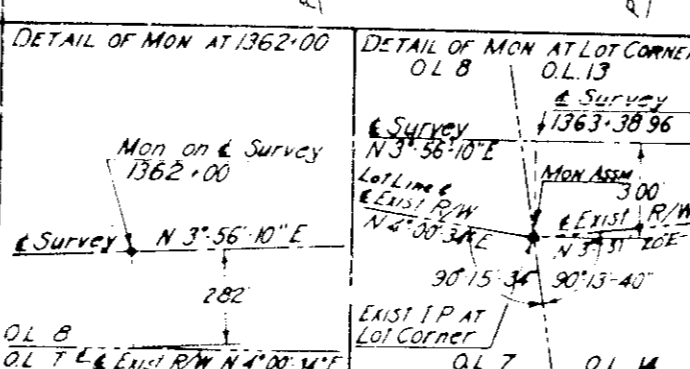 DETAIL OF MON AT 1362+00
Mon on ℄ Survey
1362+00
℄ Survey N 3°-56'-10" E
2.82'
O.L. 8
O.L. 7 ℄ Exist R/W N 4°00'34" E
DETAIL OF MON AT LOT CORNER
O.L. 8 O.L. 13
℄ Survey
1363+38.96
℄ Survey
N 3°-56'-10" E
Mon Assm
3.00'
Lot Line &
℄ Exist R/W
N 4°00'34" E
℄ Exist R/W
N 3° 51' 20" E
90°15'-34" 90°13'-40"
Exist I P at
Lot Corner
O.L. 7 O.L. 14